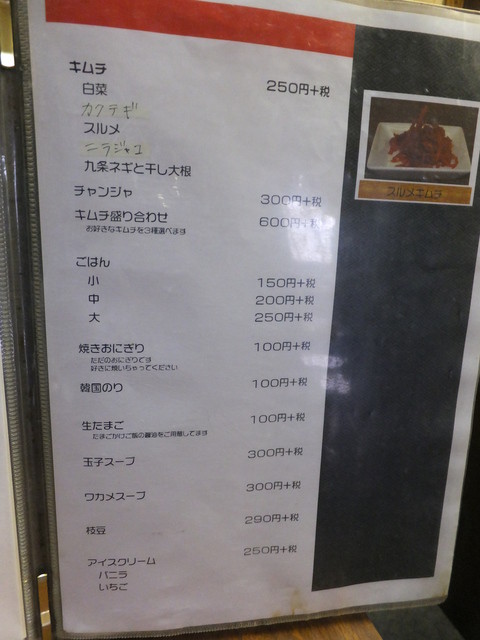 キムチ
白菜 250円+税
カクテギ
スルメ
ニラジャコ
九条ネギと干し大根
チャンジャ 300円+税
キムチ盛り合わせ 600円+税
お好きなキムチを3種選べます
ごはん
小 150円+税
中 200円+税
大 250円+税
焼きおにぎり 100円+税
ただのおにぎりです
好きに焼いちゃってください
韓国のり 100円+税
生たまご 100円+税
たまごかけご飯の醤油をご用意してます
玉子スープ 300円+税
ワカメスープ 300円+税
枝豆 290円+税
アイスクリーム 250円+税
バニラ
いちご
スルメキムチ